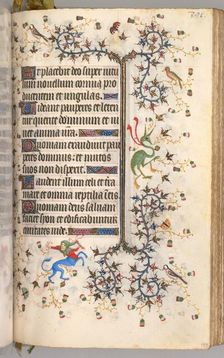 Et placebit deo super vitu
lum novellum cornua pro
ducentem et ungulas.
Videant pauperes et leten
tur querite dominum et vi
vet anima vr̄a.
Quoniam exaudivit pau
peres dominus: et vinctos
suos non despexit.
Laudent illum celi et ter
ra mare et omnia reptilia in eis.
Quoniam deus salvam
faciet syon et edificabuntur
civitates iude.